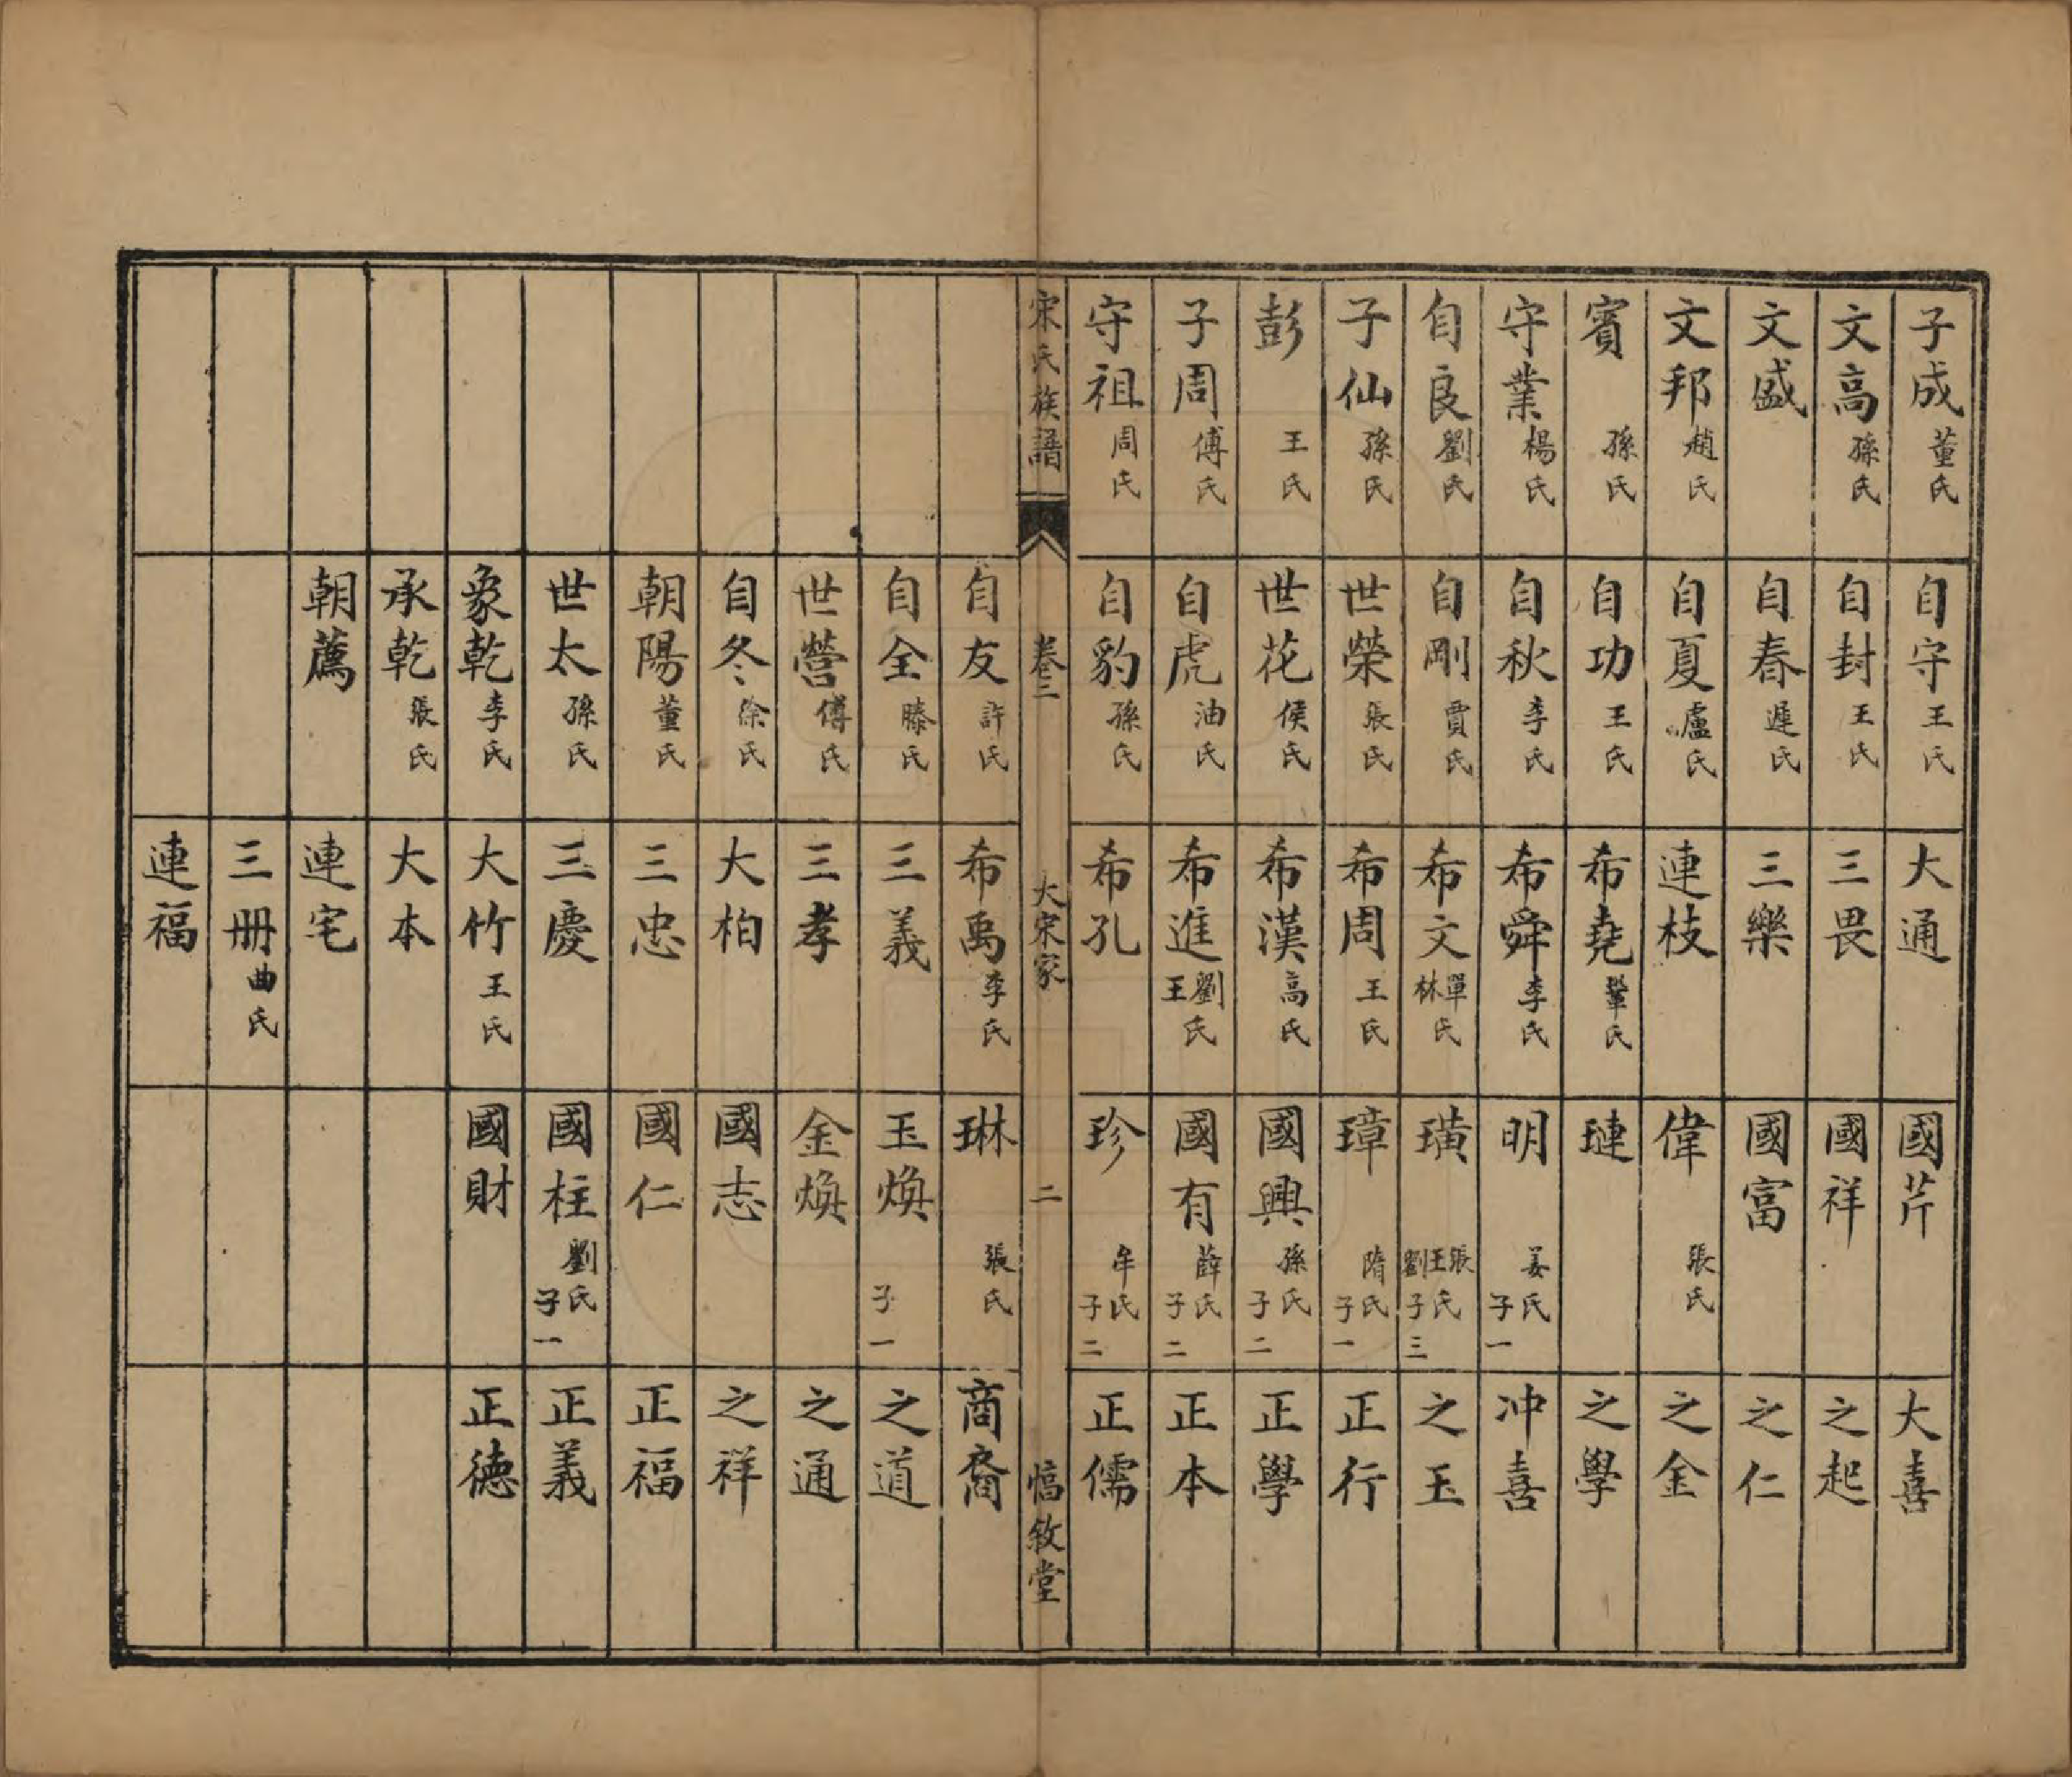 子成 董氏
文高 孫氏
文盛
文邦 趙氏
賓 孫氏
守業 楊氏
自良 劉氏
子仙 孫氏
彭 王氏
子周 傅氏
守祖 周氏
自守 王氏
自封 王氏
自春 遲氏
自夏 盧氏
自功 王氏
自秋 李氏
自剛 賈氏
世榮 張氏
世花 侯氏
自虎 油氏
自豹 孫氏
大通
三畏
三樂
連枝
希堯 鞏氏
希舜 李氏
希文 單林氏
希周 王氏
希漢 高氏
希進 劉王氏
希孔
國芹
國祥
國富
偉 張氏
璉
明 姜氏 子一
璜 張王劉氏 子三
璋 隋氏 子一
國興 孫氏 子二
國有 薛氏 子二
珍 牟氏 子二
大喜
之起
之仁
之金
之學
冲喜
之玉
正行
正學
正本
正儒
宋氏族譜 卷三 大宋家 二 惇敘堂
自友 許氏
自全 滕氏
世營 傅氏
自冬 徐氏
朝陽 董氏
世太 孫氏
象乾 李氏
承乾 張氏
朝薦
希禹 李氏
三義
三孝
大柏
三忠
三慶
大竹 王氏
大本
連宅
三册 曲氏
連福
琳 張氏
玉煥 子一
金煥
國志
國仁
國柱 劉氏 子一
國財
商裔
之道
之通
之祥
正福
正義
正德